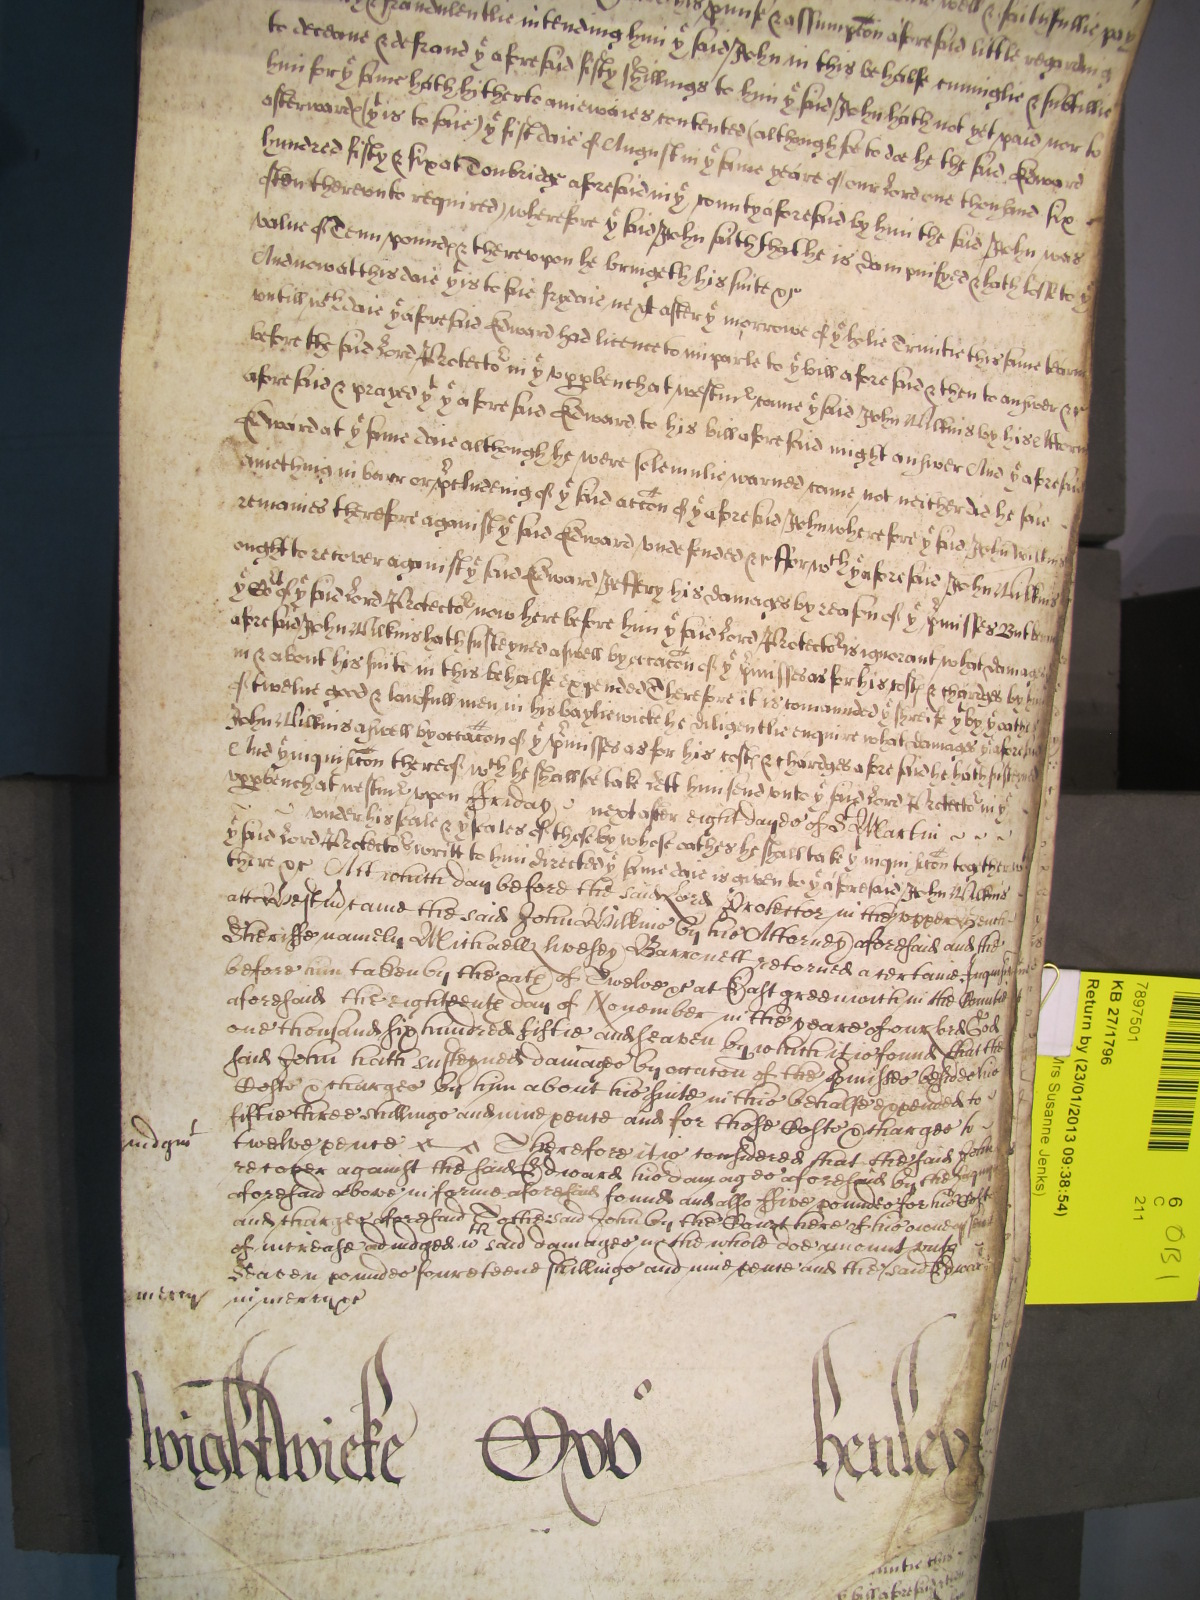 his promise & assumpcon aforesaid little regarding
& fraudulentlie intending him ye said John in this behalfe cunninglie & subtillie
to deceave & defraud ye aforesaid fifty shillings to him ye said John hath not yet paid nor
him for ye same hath hitherto aniewaies contented (although soe to doe he the said Edward
afterwards (yt is to saie) ye first daie of August in ye same yeare of our Lord one thousand six
hundred fifty & six at Tonbridge aforesaid in ye county aforesaid by him the said John was
often thereunto required) wherefore ye said John saith that he is dampnifyed & hath losse to ye
value of Tenn pounds & thereupon he bringeth his suite &c
And now at this daie yt is to saie frydaie next after ye morrowe of ye holie Trinitie this same tearm
untill wch daie ye aforesaid Edward had licence to imparle to ye bill aforesaid & then to answer &c
before the said Lord Protector in ye upp bench at westmr came ye said John Wilkins by his Attorn
aforesaid & prayed yt ye aforesaid Edward to his bill aforesaid might answer And ye aforesaid
Edward at ye same daie although he were solemnlie warned came not neither did he saie
aniething in barr or pcludeing of ye said accon of ye aforesaid John wherefore ye said John Wilkins
remaines therefore against ye said Edward undefended &c Ffor wch ye aforesaid John Wilkins
ought to recover against ye said Edward Jeffery his damages by reason of ye pmisses But
ye Cort of ye said Lord Protector now here before him ye said Lord Protector is ignorant what damages
aforesaid John Wilkins hath susteyned aswell by occacon of ye pmisses as for his costs & chardges by
in & about his suite in this behalfe expended Therefore it is comaunded ye shreife yt by ye oathes
of twelve good & lawfull men in his bayliewicke he diligentlie enquire what damages ye aforesaid
John Wilkins aswell by occacon of ye pmisses as for his costs & chardges aforesaid he hath susteyned
And ye inquisicon thereof wch he shall soe take lett him send unto ye said Lord Protector in ye
upp bench at westmr upon Ffriday next after eight dayes of St Martin
under his seale & ye seales of those by whose oathes he shall take ye inquisicon together wth
ye said Lord Protectors writt to him directed ye same daie is given to ye aforesaid John Wilkins
there &c Att which day before the said Lord Protector in the upper Bench
att Westmr came the said John Wilkins by his Attorney aforesaid and the
Sheriffe namely Michaell Livesey Barronett returned a certaine Inquisicon
before him taken by the oath of Twelve &c at East greenwich in the County
aforesaid the eighteenth day of November in the yeare of our Lord God
one thousand six hundred fiftie and seaven by which it is found that the
said John hath susteyned damages by occacon of the pmisses beside his
Costs & charges by him about his suite in this behalfe expended to
fiftie three shillings and nine pence and for those Costs & charges to
twelve pence Therefore it is considered that the said John
recover against the said Edward his damages aforesaid by the Inquis
aforesaid above in forme aforesaid found and also ffive poundes for his Costs
and charges aforesaid to the said John by the Court here of his owne assent
of increase adiudged wch said damages in the whole doe amount unto
Seaven poundes foureteene shillings and nine pence and the said Edward
in mercy &c
iudgmt
mercy
Wightwicke
Ow
henley
7897501
KB 27/1796
Return by (23/01/2013 09:38:54)
Mrs Susanne Jenks)
6
C
211
OB1